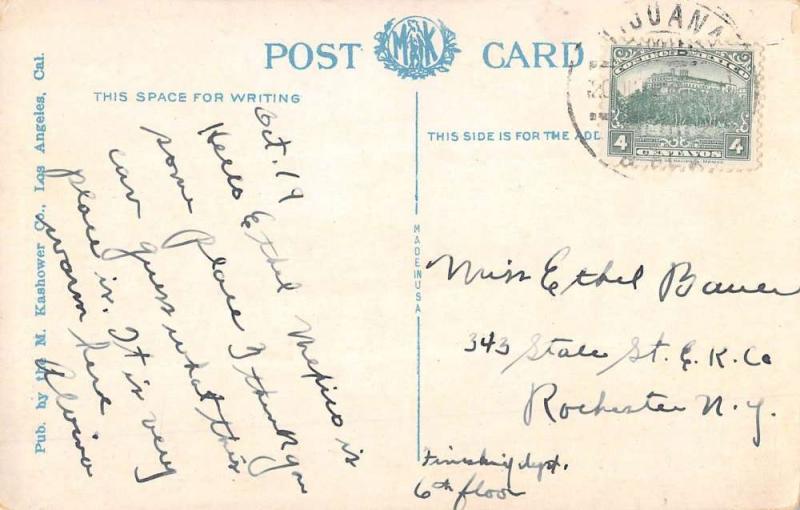 POST CARD
MK
TIJUANA
CORREOS MEXICO
4 CENTAVOS 4
THIS SPACE FOR WRITING
THIS SIDE IS FOR THE ADD
Pub. by the M. Kashower Co., Los Angeles, Cal.
MADE IN USA
Oct. 19
Hello Ethel Mexico is
some place I think you
can guess what this
place is. It is very
warm here
Alvina
Miss Ethel Bauer
343 State St. E. K. Co
Rochester N.Y.
Finishing dept.
6th floor